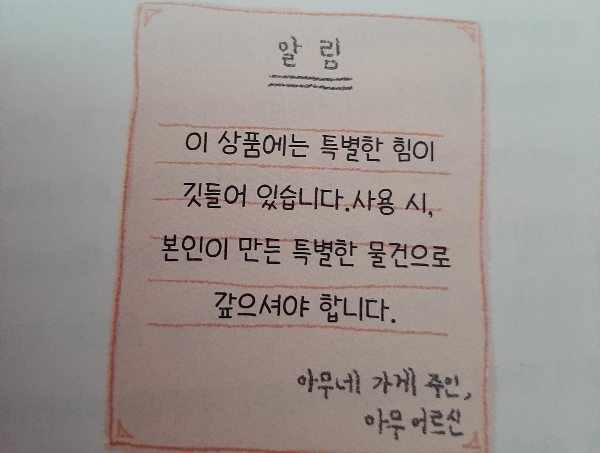 알 림
이 상품에는 특별한 힘이
깃들어 있습니다.사용 시,
본인이 만든 특별한 물건으로
갚으셔야 합니다.
아무네 가게 주인,
아무 어르신